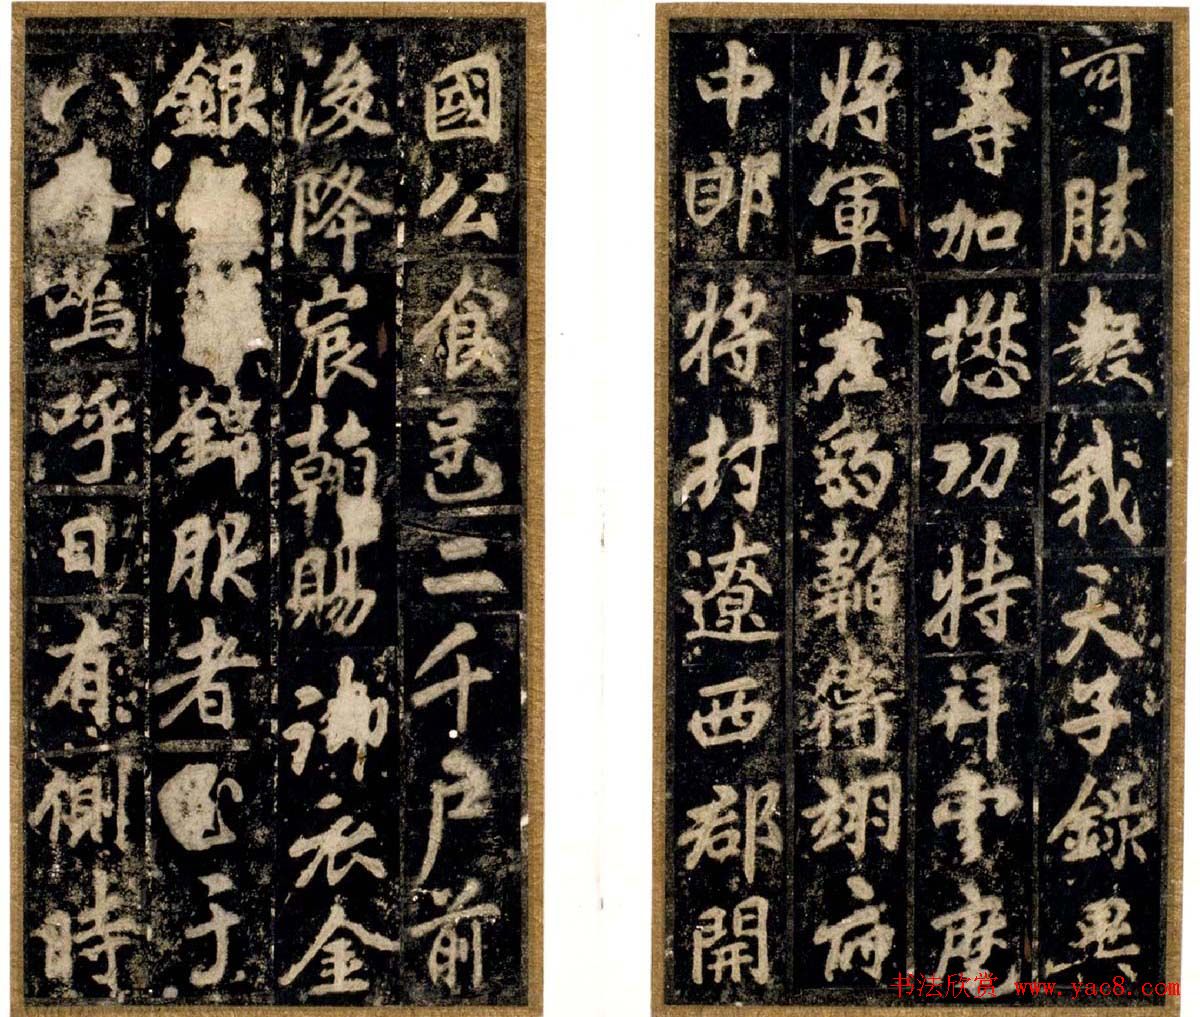 可勝數我天子錄異
等加懋功特拜雲麾
將軍左豹韜衛翊府
中郎將封遼西郡開
國公食邑二千戶前
後降宸翰賜御衣金
銀錦服者于
八嗚呼日有側時
书法欣赏 www.yac8.com